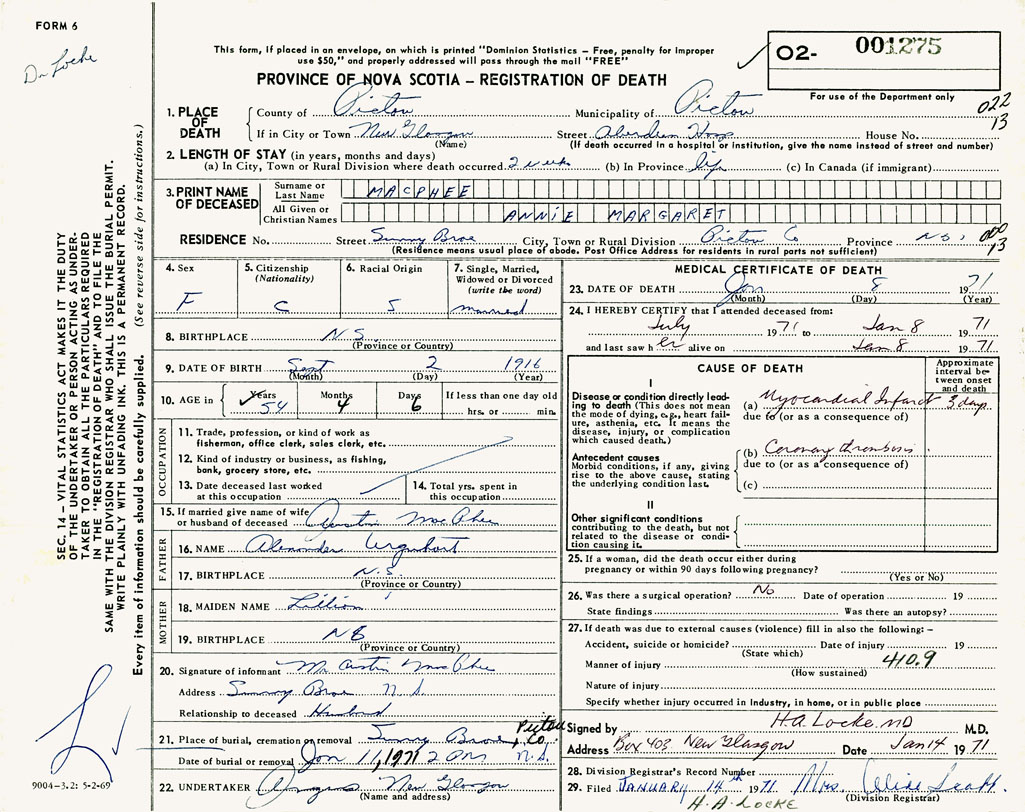 FORM 6
Dr Locke
This form, if placed in an envelope, on which is printed "Dominion Statistics – Free, penalty for improper
use $50," and properly addressed will pass through the mail "FREE"
PROVINCE OF NOVA SCOTIA – REGISTRATION OF DEATH
02- 001275
For use of the Department only
022
13
1. PLACE OF DEATH
County of Pictou Municipality of Pictou
If in City or Town New Glasgow Street Aberdeen Hosp House No.
(Name) (If death occurred in a hospital or institution, give the name instead of street and number)
2. LENGTH OF STAY (in years, months and days)
(a) In City, Town or Rural Division where death occurred 2 weeks (b) In Province life (c) In Canada (if immigrant)
3. PRINT NAME OF DECEASED
Surname or Last Name MACPHEE
All Given or Christian Names ANNIE MARGARET
RESIDENCE No. Street Sunny Brae City, Town or Rural Division Pictou Co Province N.S.
000
13
(Residence means usual place of abode. Post Office Address for residents in rural parts not sufficient)
4. Sex
F
5. Citizenship
(Nationality)
C
6. Racial Origin
S
7. Single, Married,
Widowed or Divorced
(write the word)
married
8. BIRTHPLACE N.S.
(Province or Country)
9. DATE OF BIRTH Sept 2 1916
(Month) (Day) (Year)
10. AGE in Years 54 Months 4 Days 6 If less than one day old
hrs. or min.
OCCUPATION
11. Trade, profession, or kind of work as
fisherman, office clerk, sales clerk, etc.
12. Kind of industry or business, as fishing,
bank, grocery store, etc.
13. Date deceased last worked
at this occupation
14. Total yrs. spent in
this occupation
15. If married give name of wife
or husband of deceased Austin MacPhee
FATHER
16. NAME Alexander Urquhart
17. BIRTHPLACE N.S.
(Province or Country)
MOTHER
18. MAIDEN NAME Lillian
19. BIRTHPLACE NB
(Province or Country)
20. Signature of informant Mr Austin MacPhee
Address Sunny Brae N.S.
Relationship to deceased Husband
21. Place of burial, cremation or removal Sunny Brae, Pictou Co.
Date of burial or removal Jan 11, 1971 2 PM N.S.
22. UNDERTAKER New Glasgow
(Name and address)
MEDICAL CERTIFICATE OF DEATH
23. DATE OF DEATH Jan 8 1971
(Month) (Day) (Year)
24. I HEREBY CERTIFY that I attended deceased from:
July 1971 to Jan 8 1971
and last saw her alive on Jan 8 1971
CAUSE OF DEATH
Approximate
interval be-
tween onset
and death
I
Disease or condition directly lead-
ing to death (This does not mean
the mode of dying, e.g., heart fail-
ure, asthenia, etc. It means the
disease, injury, or complication
which caused death.)
(a) Myocardial Infarct 3 days
due to (or as a consequence of)
Antecedent causes
Morbid conditions, if any, giving
rise to the above cause, stating
the underlying condition last.
(b) Coronary thrombosis
due to (or as a consequence of)
(c)
II
Other significant conditions
contributing to the death, but not
related to the disease or condi-
tion causing it.
25. If a woman, did the death occur either during
pregnancy or within 90 days following pregnancy?
(Yes or No)
26. Was there a surgical operation? No Date of operation 19
State findings Was there an autopsy?
27. If death was due to external causes (violence) fill in also the following: –
Accident, suicide or homicide? Date of injury 19
(State which)
Manner of injury 410.9
(How sustained)
Nature of injury
Specify whether injury occurred in industry, in home, or in public place
Signed by H.A. Locke MD M.D.
Address Box 403 New Glasgow Date Jan 14 1971
28. Division Registrar's Record Number
29. Filed JANUARY 14th 1971 Mrs.
(Division Registrar)
H. A. LOCKE
SEC. 14 – VITAL STATISTICS ACT MAKES IT THE DUTY
OF THE UNDERTAKER OR PERSON ACTING AS UNDER-
TAKER TO OBTAIN ALL THE PARTICULARS REQUIRED
IN THE "REGISTRATION OF DEATH" AND TO FILE THE
SAME WITH THE DIVISION REGISTRAR WHO SHALL ISSUE THE BURIAL PERMIT.
WRITE PLAINLY WITH UNFADING INK. THIS IS A PERMANENT RECORD.
Every item of information should be carefully supplied. (See reverse side for instructions.)
9004-3.2: 5-2-69